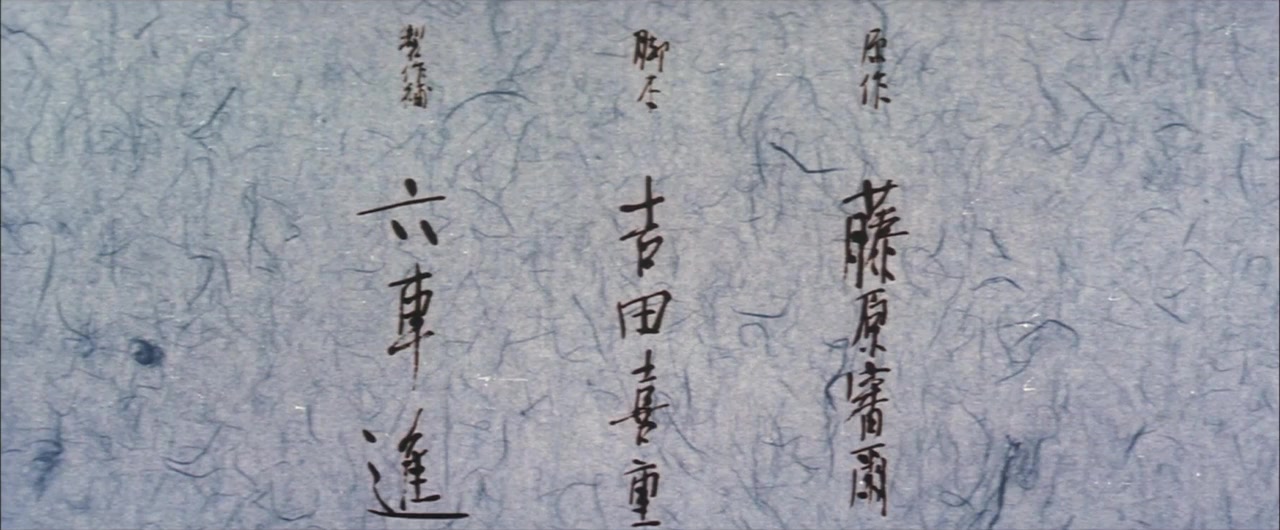 原作
藤原審爾
脚本
吉田喜重
製作補
六車進